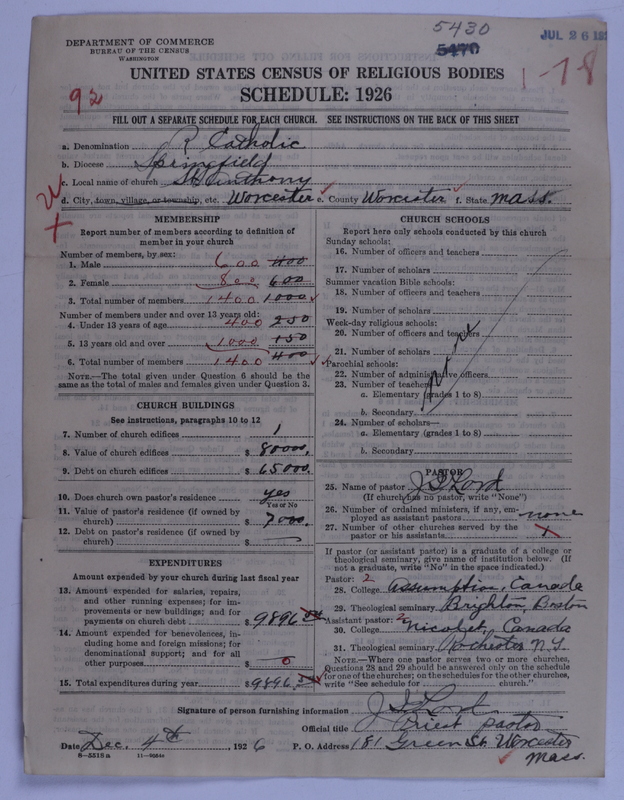 5430
5470
JUL 26 192
DEPARTMENT OF COMMERCE
BUREAU OF THE CENSUS
WASHINGTON
UNITED STATES CENSUS OF RELIGIOUS BODIES
SCHEDULE: 1926
92
1-78
FILL OUT A SEPARATE SCHEDULE FOR EACH CHURCH. SEE INSTRUCTIONS ON THE BACK OF THIS SHEET
a. Denomination R Catholic
b. Diocese Springfield
c. Local name of church St. Anthony
d. City, town, village, or township, etc. Worcester e. County Worcester f. State Mass.
MEMBERSHIP
Report number of members according to definition of member in your church
Number of members, by sex:
1. Male 600 400
2. Female 800 600
3. Total number of members 1400 1000
Number of members under and over 13 years old:
4. Under 13 years of age 400 250
5. 13 years old and over 1000 150
6. Total number of members 1400 400
NOTE.—The total given under Question 6 should be the same as the total of males and females given under Question 3.
CHURCH BUILDINGS
See instructions, paragraphs 10 to 12
7. Number of church edifices 1
8. Value of church edifices $ 80000.
9. Debt on church edifices $ 65000.
10. Does church own pastor's residence yes
Yes or No
11. Value of pastor's residence (if owned by church) $ 7000.
12. Debt on pastor's residence (if owned by church) $ —
EXPENDITURES
Amount expended by your church during last fiscal year
13. Amount expended for salaries, repairs, and other running expenses; for improvements or new buildings; and for payments on church debt $ 9896
14. Amount expended for benevolences, including home and foreign missions; for denominational support; and for all other purposes $ 0
15. Total expenditures during year $ 9896
CHURCH SCHOOLS
Report here only schools conducted by this church
Sunday schools:
16. Number of officers and teachers
17. Number of scholars
Summer vacation Bible schools:
18. Number of officers and teachers
19. Number of scholars
Week-day religious schools:
20. Number of officers and teachers
21. Number of scholars
Parochial schools:
22. Number of administrative officers
23. Number of teachers—
a. Elementary (grades 1 to 8)
b. Secondary
24. Number of scholars—
a. Elementary (grades 1 to 8)
b. Secondary
PASTOR
25. Name of pastor J G Lord
(If church has no pastor, write "None")
26. Number of ordained ministers, if any, employed as assistant pastors none
27. Number of other churches served by the pastor or his assistants x
If pastor (or assistant pastor) is a graduate of a college or theological seminary, give name of institution below. (If not a graduate, write "No" in the space indicated.)
Pastor: 2
28. College Assumption, Canada
29. Theological seminary Brighton, Boston
Assistant pastor: 2
30. College Nicolet, Canada
31. Theological seminary Rochester N.Y.
NOTE.—Where one pastor serves two or more churches, Questions 28 and 29 should be answered only on the schedule for one of the churches; on the schedules for the other churches, write "See schedule for church."
Signature of person furnishing information J G Lord
Official title Priest pastor
Date Dec. 4th, 1926 P. O. Address 181 Green St. Worcester
Mass.
8—5518a 11—9054c